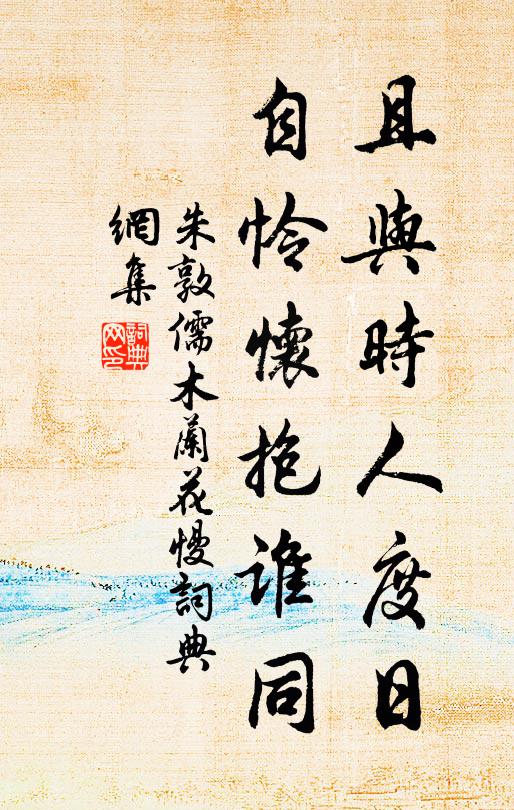 且與時人度日
自怜懷抱誰同
朱敦儒木蘭花慢詞典
網集
詞典
网印